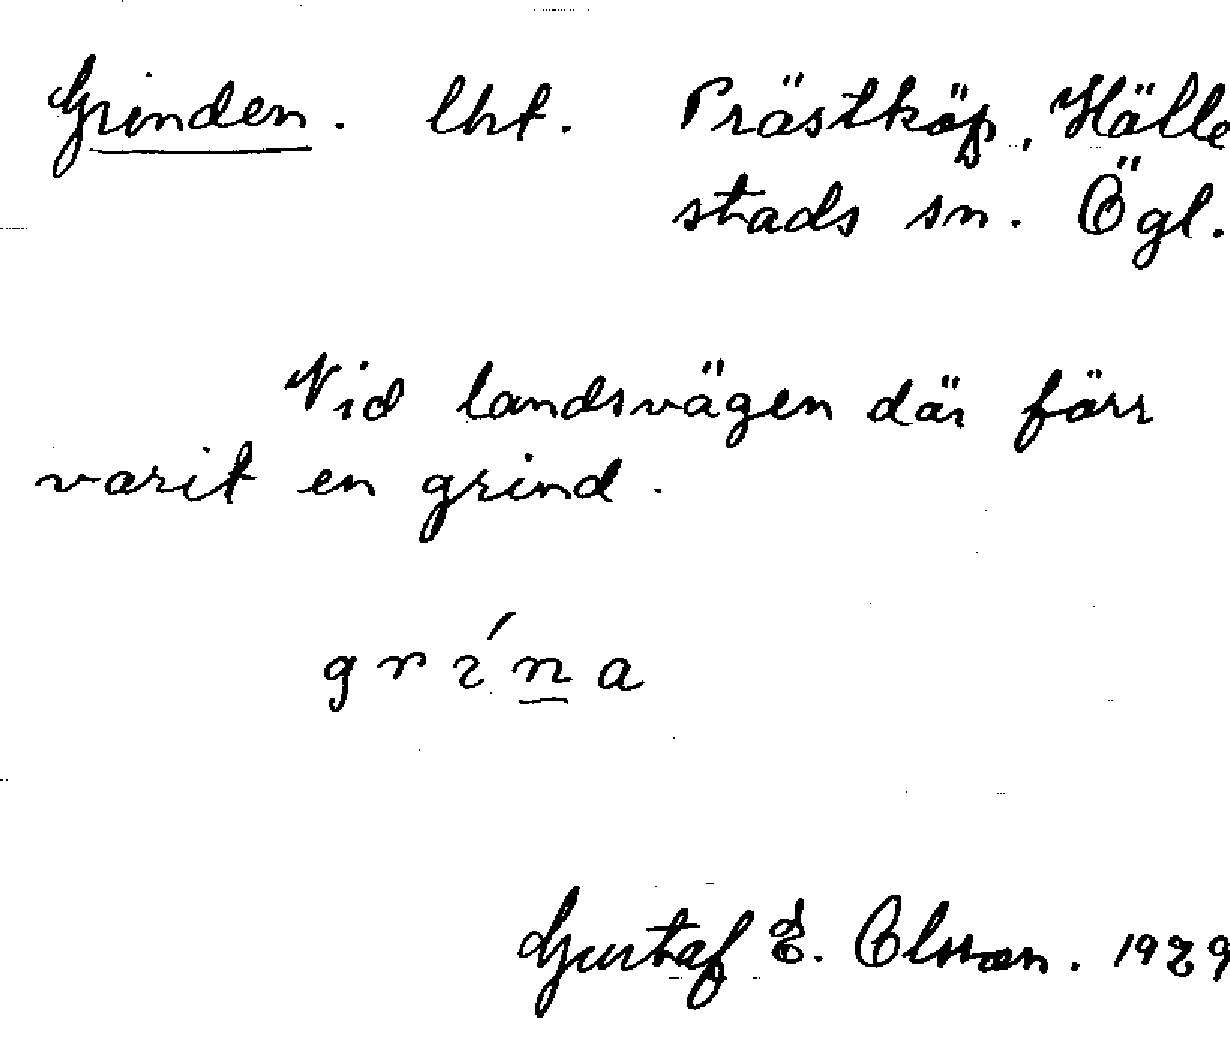 Grinden. lht. Prästköp, Hälle
stads sn. Ögl.
Vid landsvägen där förr
varit en grind.
grína
Gustaf E. Olsson. 1929